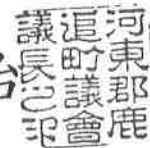 河東郡鹿
追町議會
議長之印